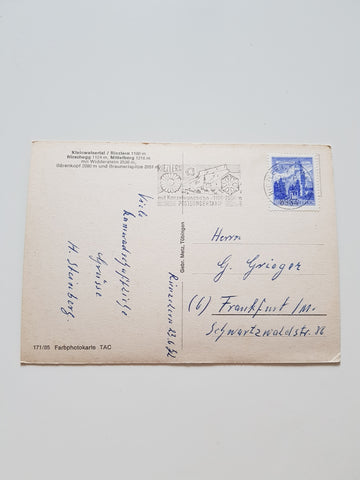 Kleinwalsertal / Riezlern 1100 m
Hirschegg 1124 m, Mittelberg 1218 m
mit Widderstein 2536 m,
Bärenkopf 2080 m und Braunarlspitze 2651 m
RIEZLERN
mit Kanzelwandbahn 1100-2000 m
Herrn
G. Grieger
(6) Frankfurt/M.
Schwartzwaldstr.
Viele
kameradschaftliche
Grüsse
H. Steinberg.
Riezlern
Gebr. Metz, Tübingen
171/85 Farbphotokarte TAC